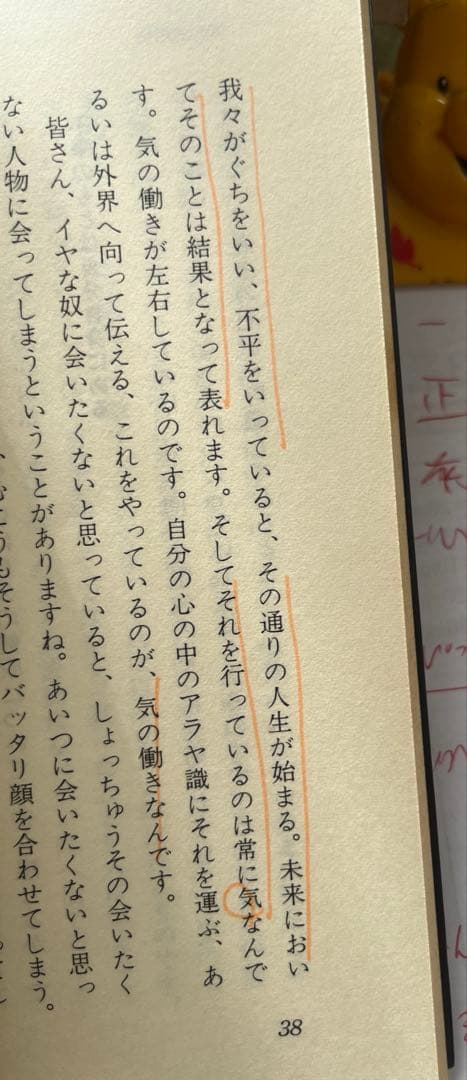 我々がぐちをいい、不平をいっていると、その通りの人生が始まる。未来におい
てそのことは結果となって表れます。そしてそれを行っているのは常に気なんで
す。気の働きが左右しているのです。自分の心の中のアラヤ識にそれを運ぶ、あ
るいは外界へ向って伝える、これをやっているのが、気の働きなんです。
皆さん、イヤな奴に会いたくないと思っていると、しょっちゅうその会いたく
ない人物に会ってしまうということがありますね。あいつに会いたくないと思っ
こうもそうしてバッタリ顔を合わせてしまう。
38
一
正